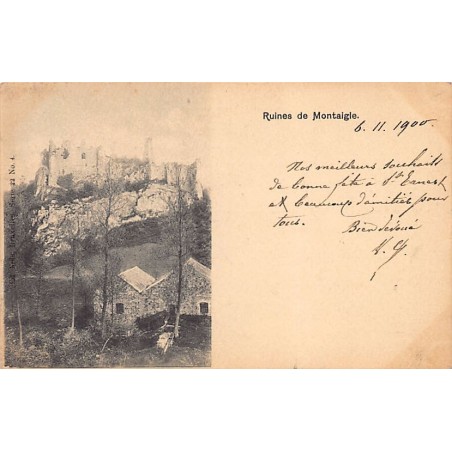 Ruines de Montaigle.
6.11.1900.
Mes meilleurs souhaits
de bonne fête à St Ernest
et beaucoup d'amitiés pour
tous.
Bien dévoué
N° 4.